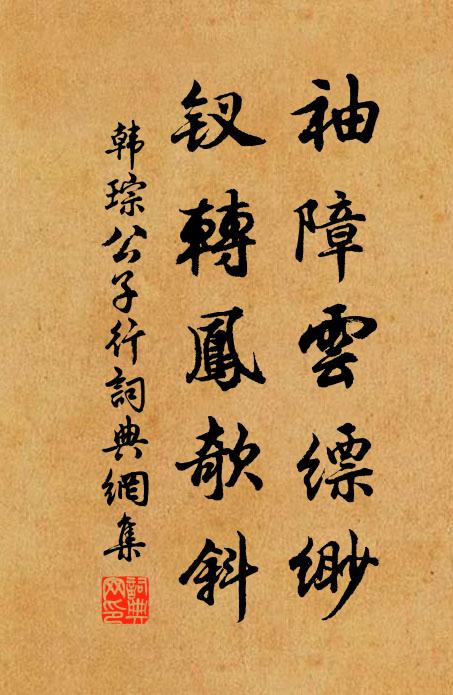 袖障雲縹緲
釵轉鳳欹斜
韓琮公子行詞典網集
詞典网印